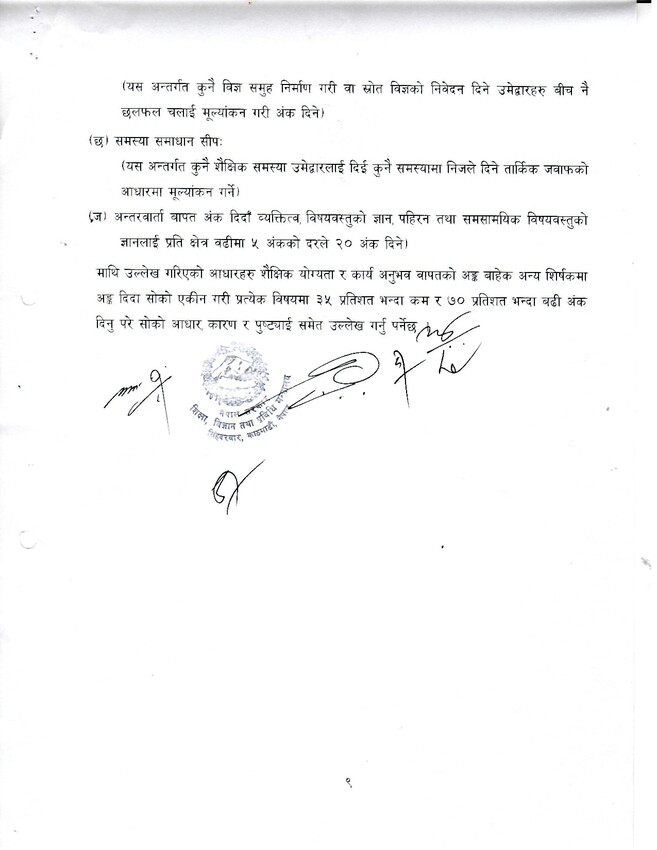 (यस अन्तर्गत कुनै विज्ञ समुह निर्माण गरी वा स्रोत विज्ञको निवेदन दिने उमेद्वारहरु बीच नै
छलफल चलाई मूल्यांकन गरी अंक दिने)
(छ) समस्या समाधान सीपः
(यस अन्तर्गत कुनै शैक्षिक समस्या उमेद्वारलाई दिई कुनै समस्यामा निजले दिने तार्किक जवाफको
आधारमा मूल्यांकन गर्ने)
(ज) अन्तरवार्ता वापत अंक दिदाँ व्यक्तित्व, विषयवस्तुको ज्ञान, पहिरन तथा समसामयिक विषयवस्तुको
ज्ञानलाई प्रति क्षेत्र वढीमा ५ अंकको दरले २० अंक दिने)
माथि उल्लेख गरिएको आधारहरु शैक्षिक योग्यता र कार्य अनुभव वापतको अङ्क वाहेक अन्य शिर्षकमा
अङ्क दिदा सोको एकीन गरी प्रत्येक विषयमा ३५ प्रतिशत भन्दा कम र ७० प्रतिशत भन्दा बढी अंक
दिनु परे सोको आधार, कारण र पुष्ट्याई समेत उल्लेख गर्नु पर्नेछ
नेपाल सरकार
शिक्षा, विज्ञान तथा प्रविधि मन्त्रालय
सिंहदरवार, काठमाडौं, नेपाल
९